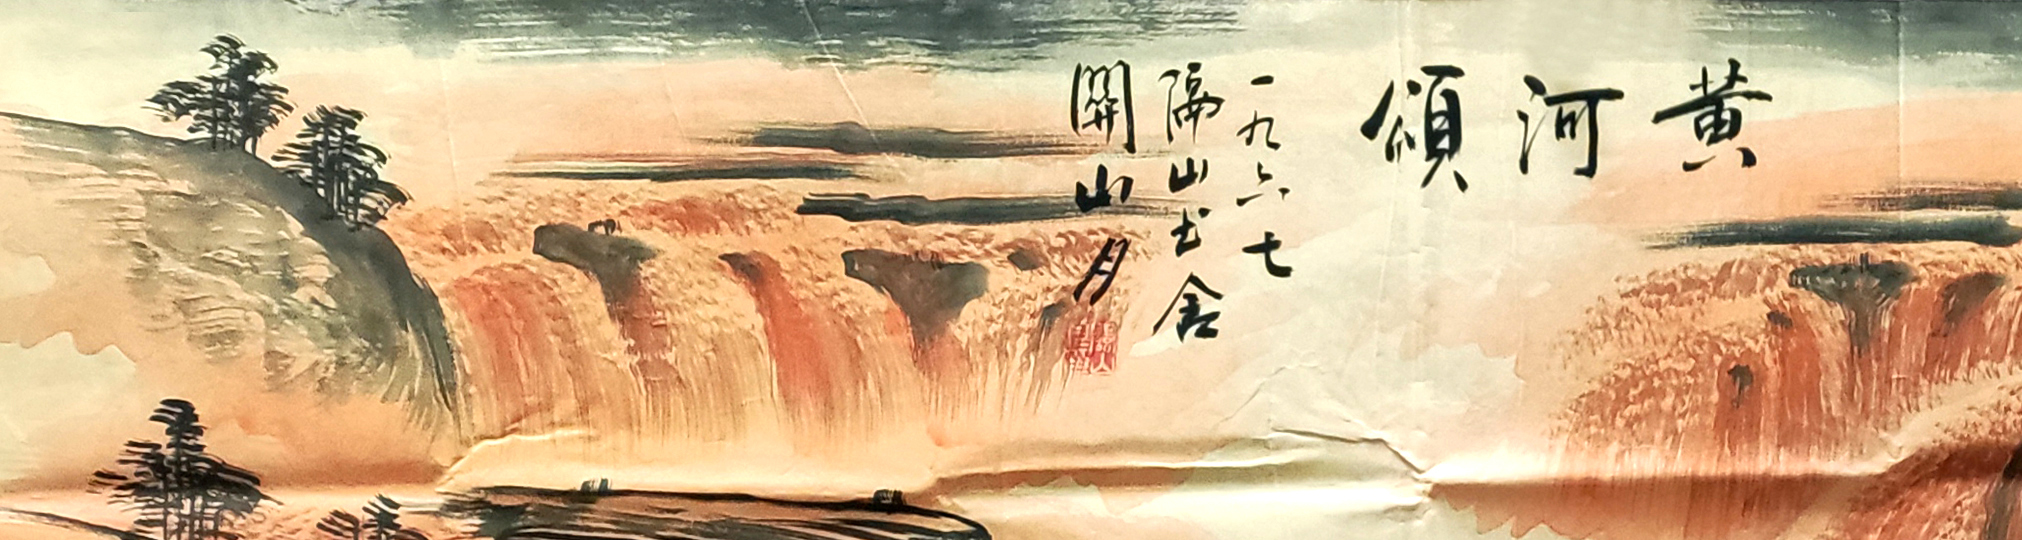 黄河頌
一九六七
隔山书舍
關山月